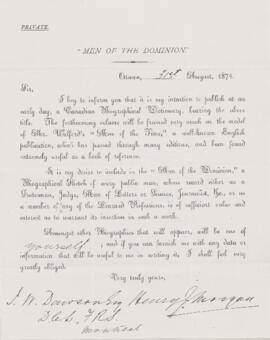 PRIVATE.
"MEN OF THE DOMINION."
Ottawa, 31st August, 1871.
Sir,
I beg to inform you that it is my intention to publish at an
early day, a Canadian Biographical Dictionary, bearing the above
title. The forthcoming volume will be framed very much on the model
of Mr. Walford's "Men of the Time," a well-known English
publication, which has passed through many editions, and been found
extremely useful as a book of reference.
It is my desire to include in the "Men of the Dominion," a
Biographical Sketch of every public man, whose record either as a
Statesman, Judge, Man of Letters or Science, Journalist, &c., or as
a member of any of the Learned Professions, is of sufficient value and
interest as to warrant its insertion in such a work.
Amongst other Biographies that will appear, will be one of
yourself; and if you can furnish me with any data or
information that will be useful to me in writing it, I shall feel very
greatly obliged.
Very truly yours,
J. W. Dawson Esq Henry J. Morgan
F.R.S.
Montreal